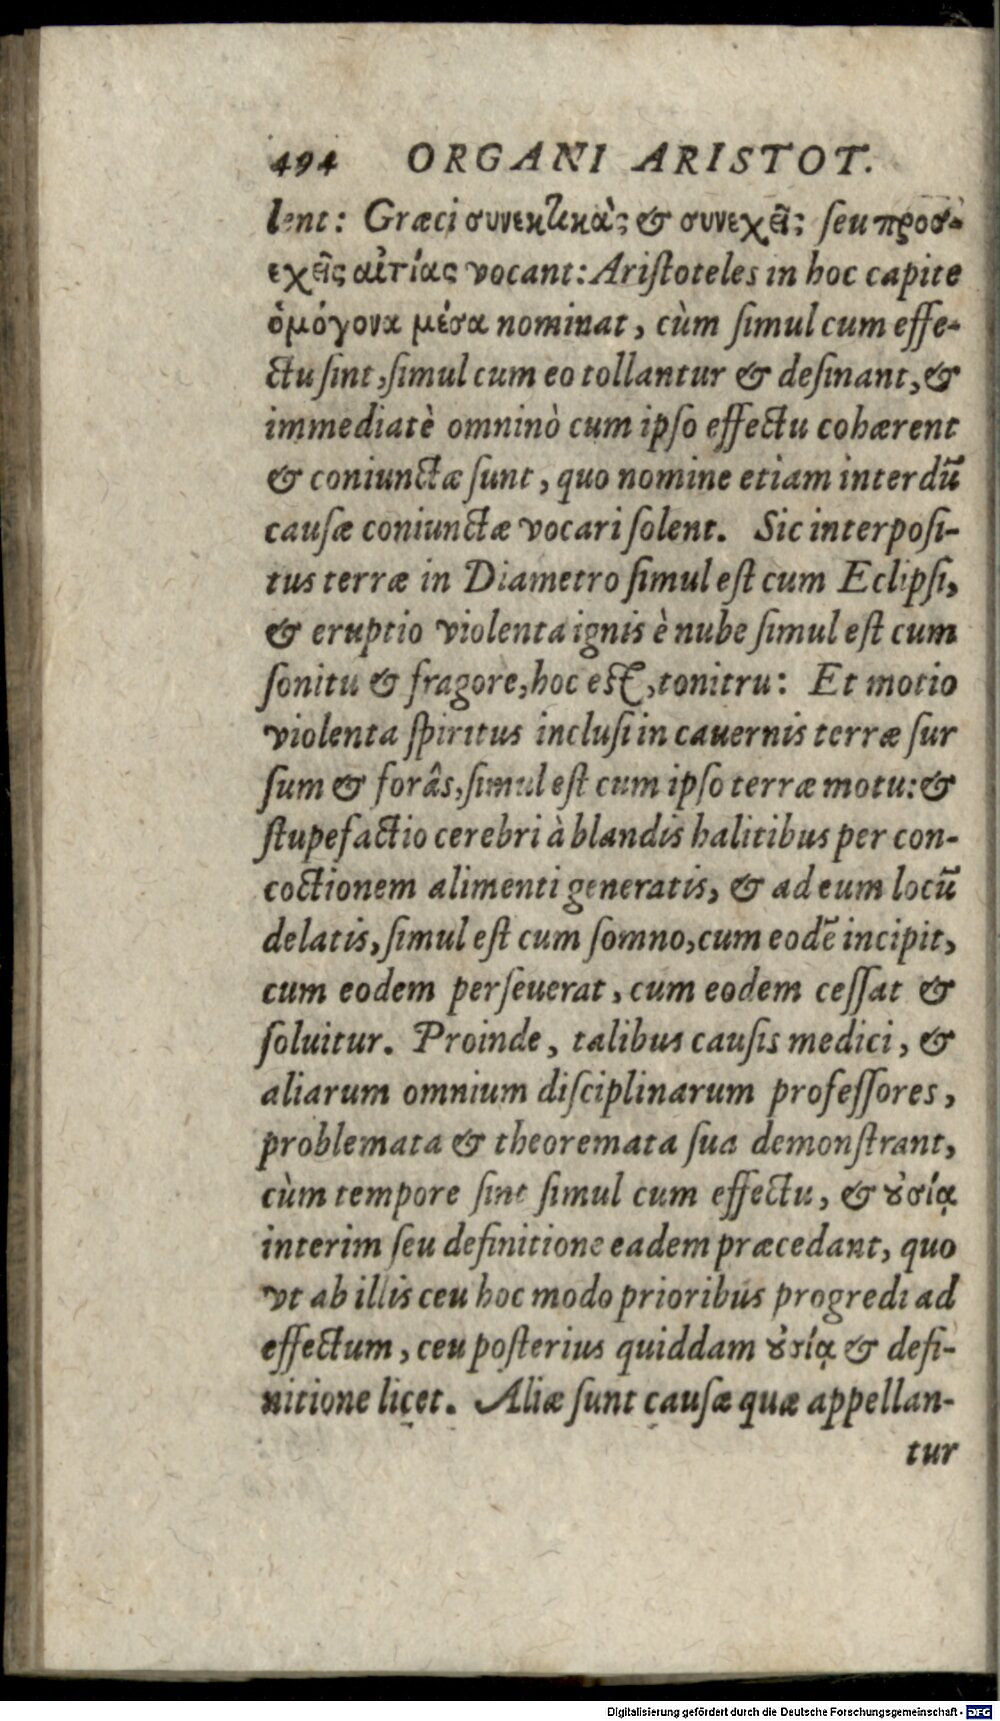 494 ORGANI ARISTOT.
lent: Græci συνεκτικὰς & συνεχεῖς ſeu προσ-
εχεῖς αἰτίας vocant: Ariſtoteles in hoc capite
ὁμόγονα μέσα nominat, cùm ſimul cum effe-
ctu ſint, ſimul cum eo tollantur & deſinant, &
immediatè omninò cum ipſo effectu cohærent
& coniunctæ ſunt, quo nomine etiam interdũ
cauſæ coniunctæ vocari ſolent. Sic interpoſi-
tus terræ in Diametro ſimul eſt cum Eclipſi,
& eruptio violenta ignis è nube ſimul eſt cum
ſonitu & fragore, hoc eſt, tonitru: Et motio
violenta ſpiritus incluſi in cauernis terræ ſur
ſum & forâs, ſimul eſt cum ipſo terræ motu: &
ſtupefactio cerebri à blandis halitibus per con-
coctionem alimenti generatis, & ad eum locũ
delatis, ſimul eſt cum ſomno, cum eodẽ incipit,
cum eodem perſeuerat, cum eodem ceſſat &
ſoluitur. Proinde, talibus cauſis medici, &
aliarum omnium diſciplinarum profeſſores,
problemata & theoremata ſua demonſtrant,
cùm tempore ſint ſimul cum effectu, & ȣ̓σίᾳ
interim ſeu definitione eadem præcedant, quo
vt ab illis ceu hoc modo prioribus progredi ad
effectum, ceu poſterius quiddam ȣ̓σίᾳ & defi-
nitione liçet. Aliæ ſunt çauſæ quæ appellan-
tur
Digitalisierung gefördert durch die Deutsche Forschungsgemeinschaft - DFG